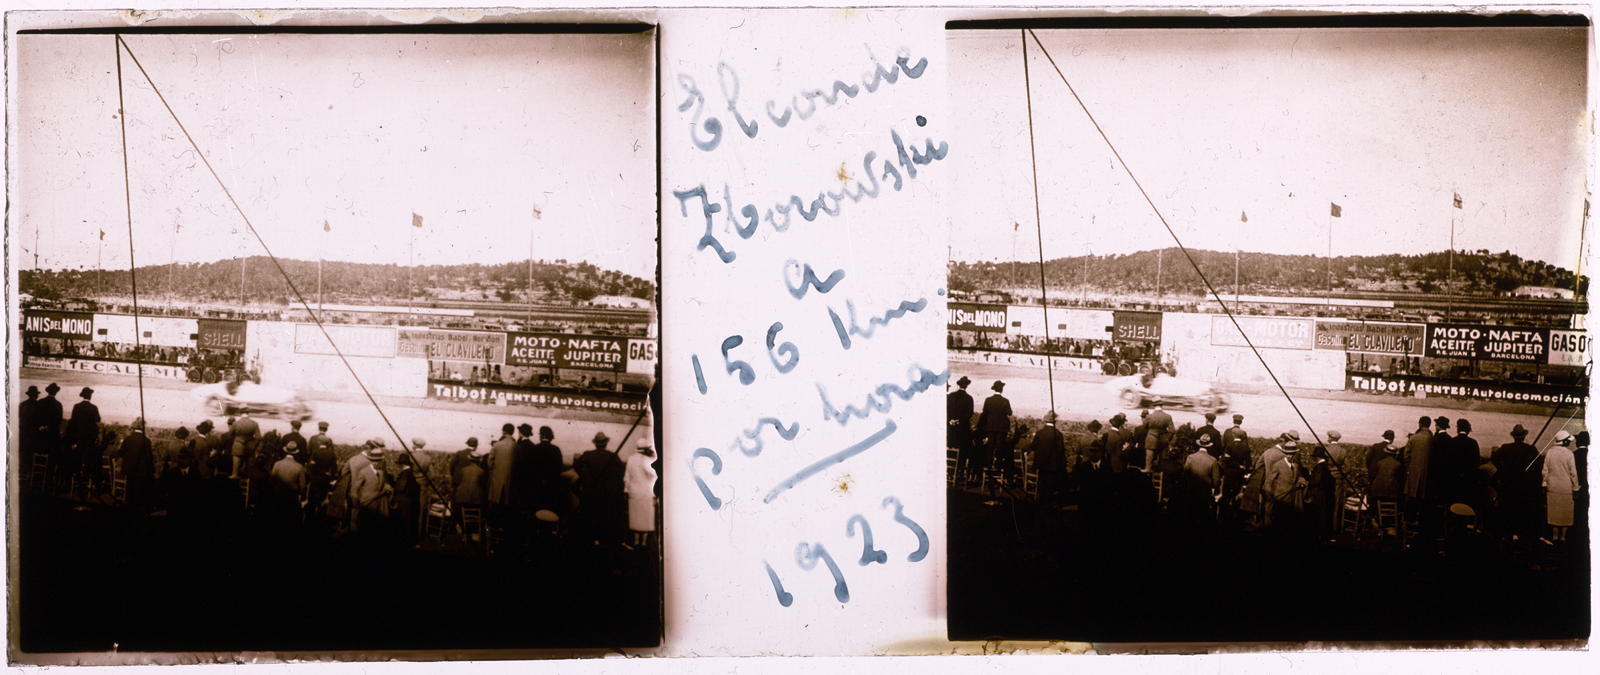 El conde
Zborowski
a
156 Km.
por hora
1923
ANIS DEL MONO
SHELL
MOTOR
Industrias Babel-Nervion
Gasolina "EL CLAVILEÑO"
MOTO-NAFTA
ACEITE JUPITER
R.S. JUAN BARCELONA
GAS
TECALEMIT
Talbot AGENTES: Autolocomoci
NIS DEL MONO
SHELL
MOTOR
Industrias Babel-Nervion
Gasolina "EL CLAVILEÑO"
MOTO-NAFTA
ACEITE JUPITER
R.S. JUAN BARCELONA
GASO
TECALEMI
Talbot AGENTES: Autolocomoción